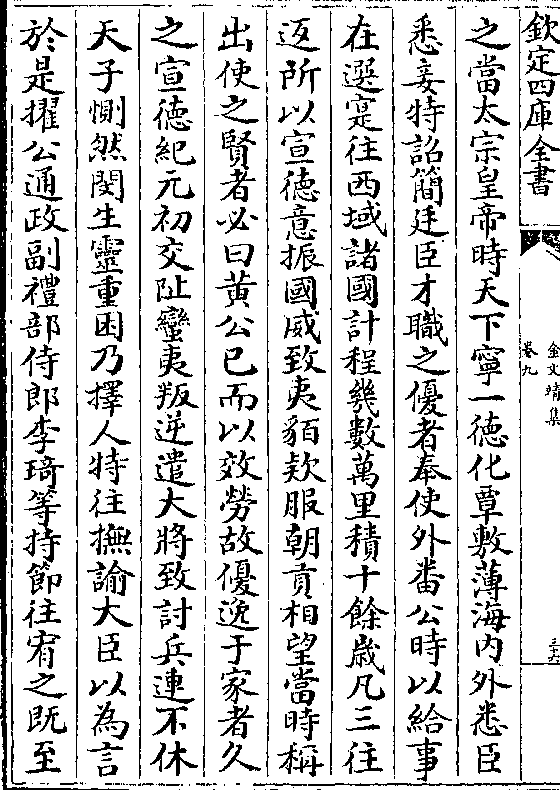 欽定四庫全書
金文靖集
卷九
之當太宗皇帝時天下寧一德化覃敷薄海内外悉臣
悉妾特詔簡廷臣才職之優者奉使外畨公時以給事
在選寔往西域諸國計程幾數萬里積十餘歲凡三往
返所以宣德意振國威致夷貊欵服朝貢相望當時稱
出使之賢者必曰黄公已而以效勞故優逸于家者久
之宣德紀元初交阯蠻夷叛逆遣大將致討兵連不休
天子惻然閔生靈重困乃擇人特往撫諭大臣以為言
於是擢公通政副禮部侍郎李琦等持節往宥之既至